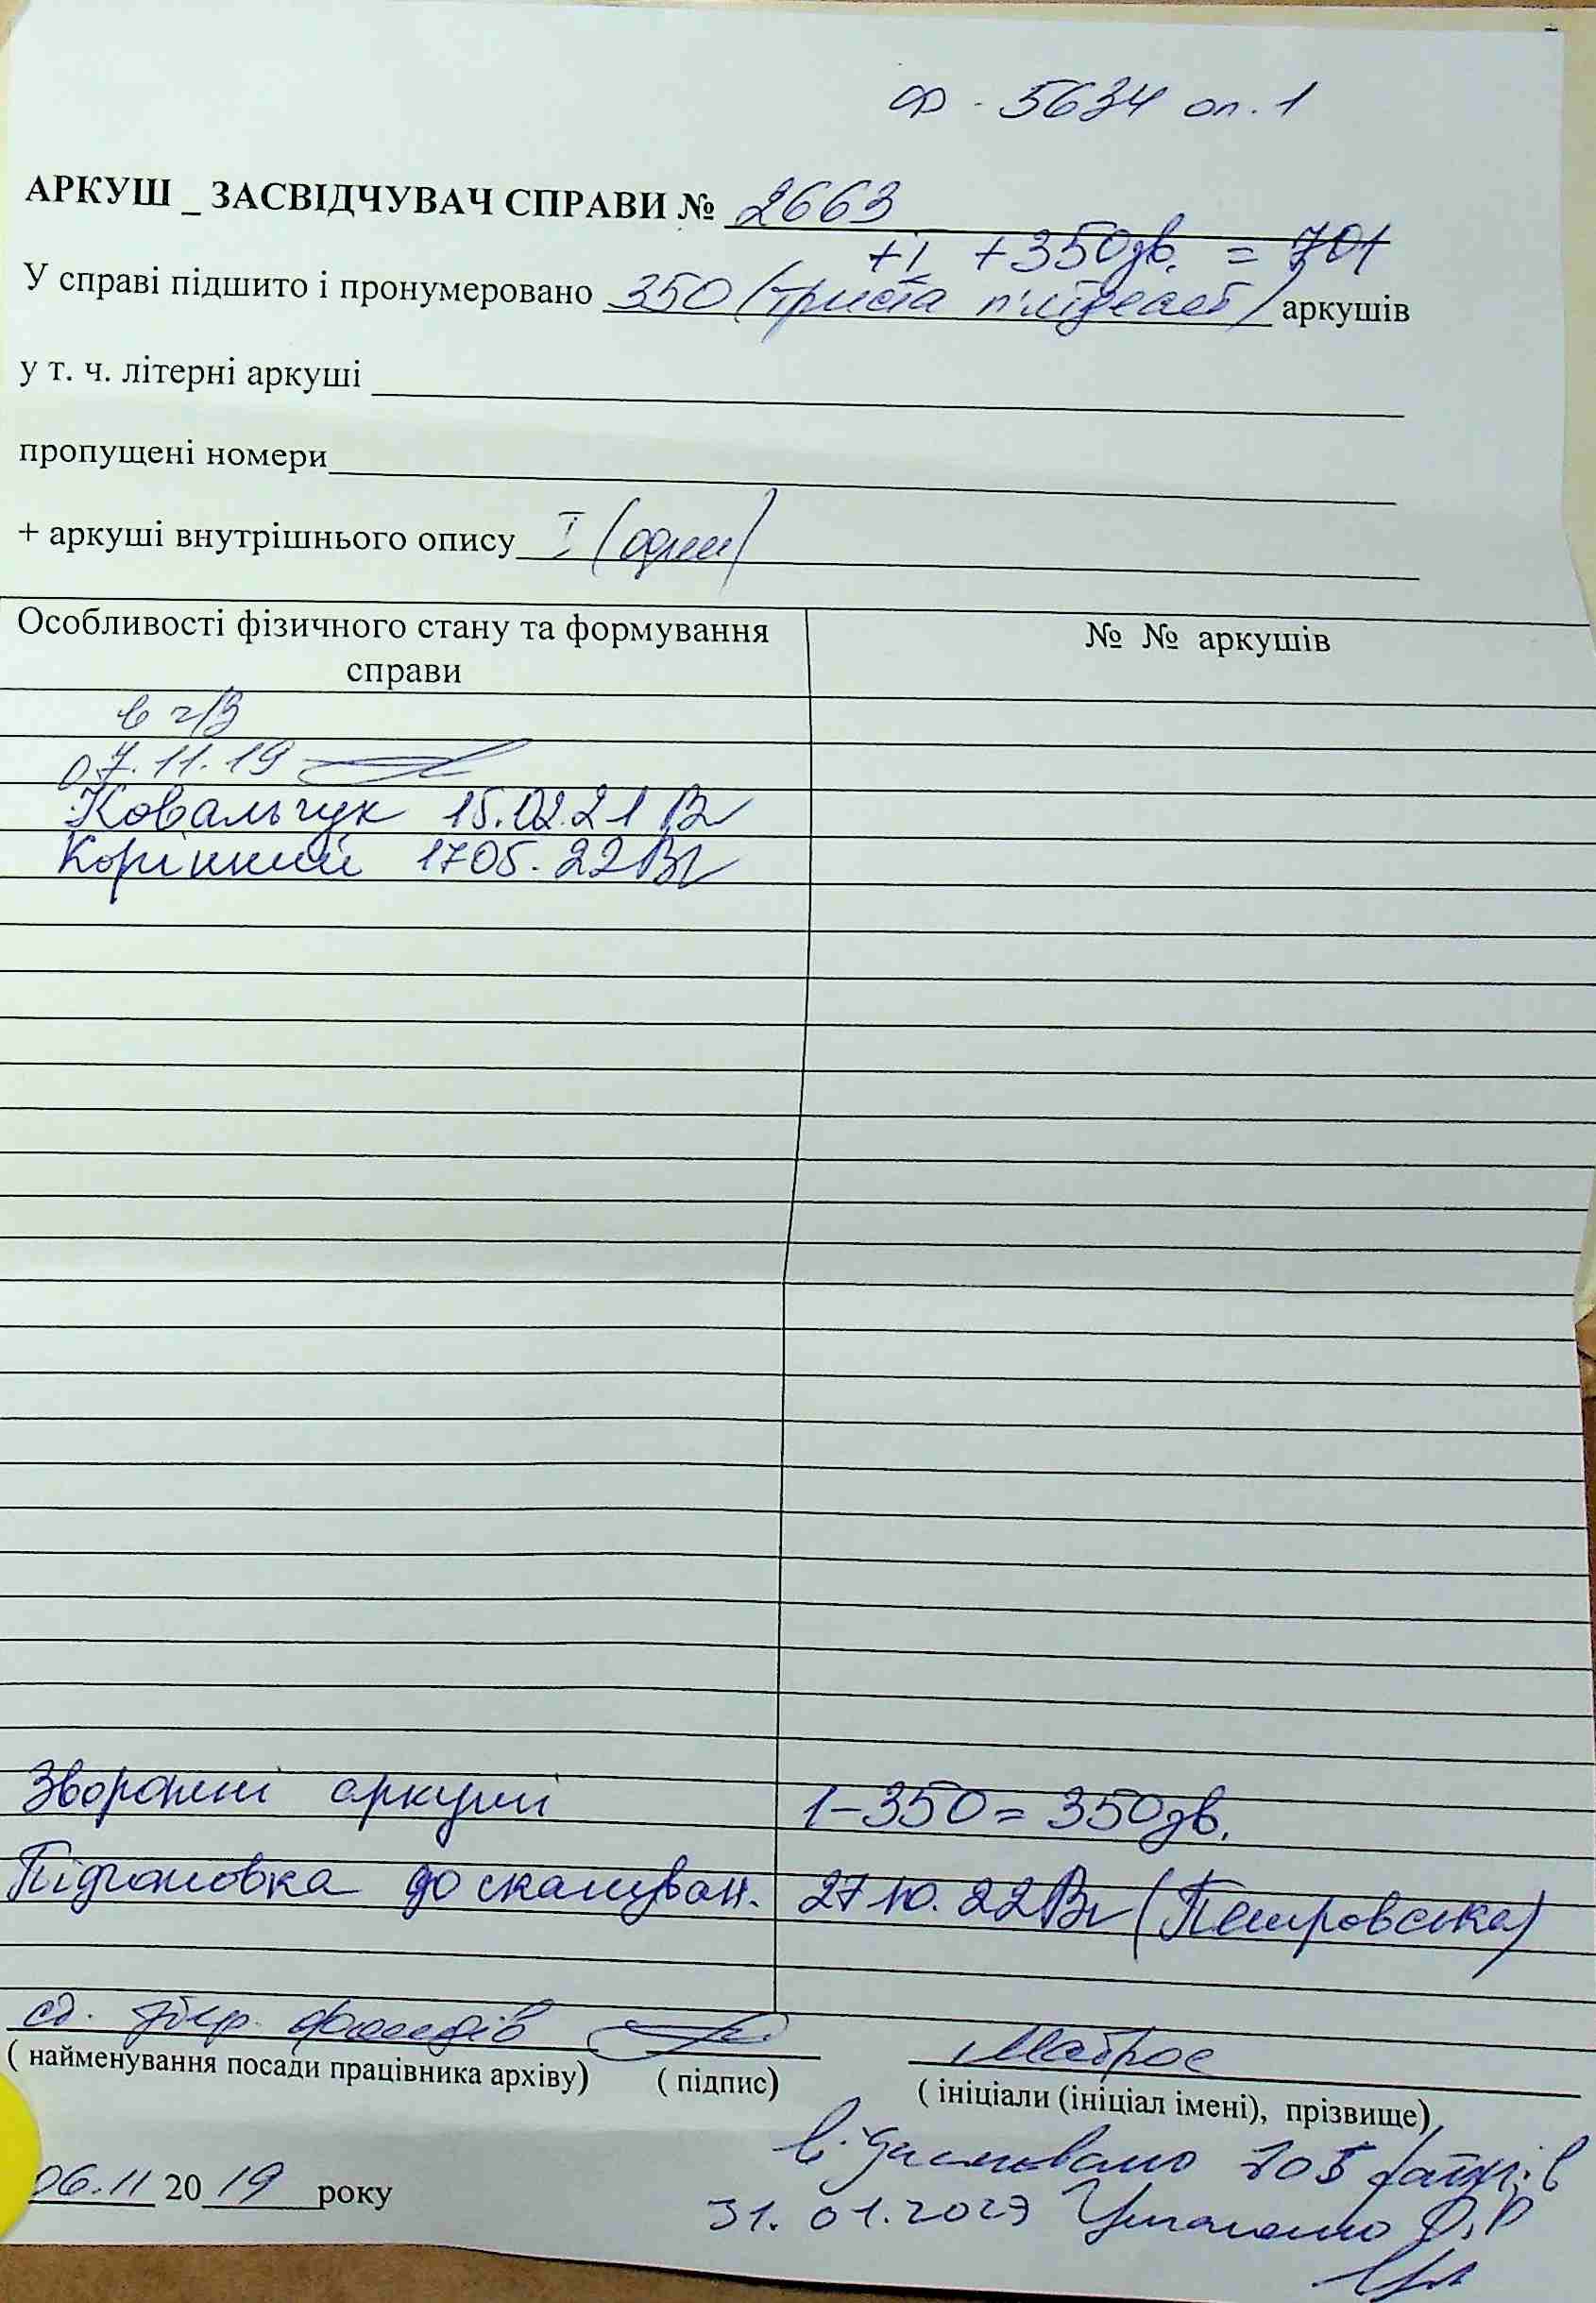 ф - 5634 оп. 1
АРКУШ _ ЗАСВІДЧУВАЧ СПРАВИ № 2663
+1 +350зв. = 701
У справі підшито і пронумеровано 350 (триста п'ятдесят) аркушів
у т. ч. літерні аркуші
пропущені номери
+ аркуші внутрішнього опису I (один)
Особливості фізичного стану та формування справи
№ № аркушів
в ч/з
07.11.19
Ковальчук 15.02.21
Корінний 17 05. 22
Зворотні аркуші 1-350 = 350зв.
Підготовка до скануван. 27 10. 22 (Петровська)
фондів Матрос
( найменування посади працівника архіву) ( підпис) ( ініціали (ініціал імені), прізвище)
відскановано 705 файлів
06.11 2019 року
31. 01. 2023